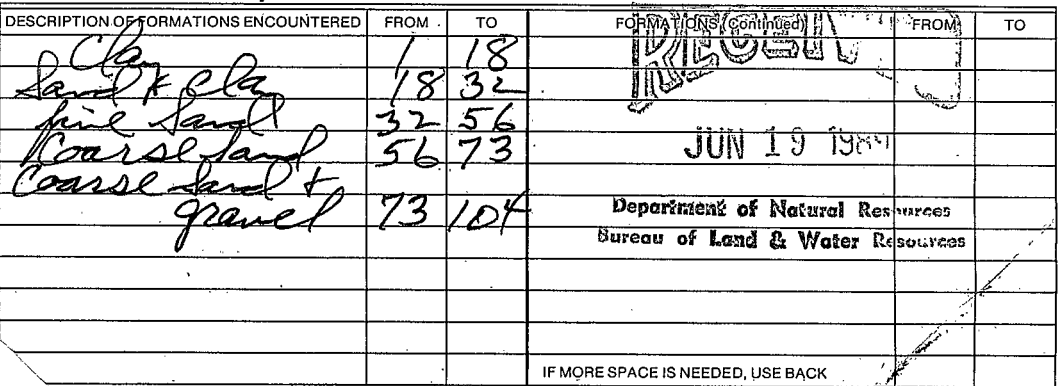 DESCRIPTION OF FORMATIONS ENCOUNTERED FROM TO FORMATIONS (Continued) FROM TO
Clay 1 18
Sand & Clay 18 32
fine Sand 32 56
Coarse Sand 56 73
Coarse Sand &
gravel 73 104
JUN 19
Department of Natural Resources
Bureau of Land & Water Resources
IF MORE SPACE IS NEEDED, USE BACK